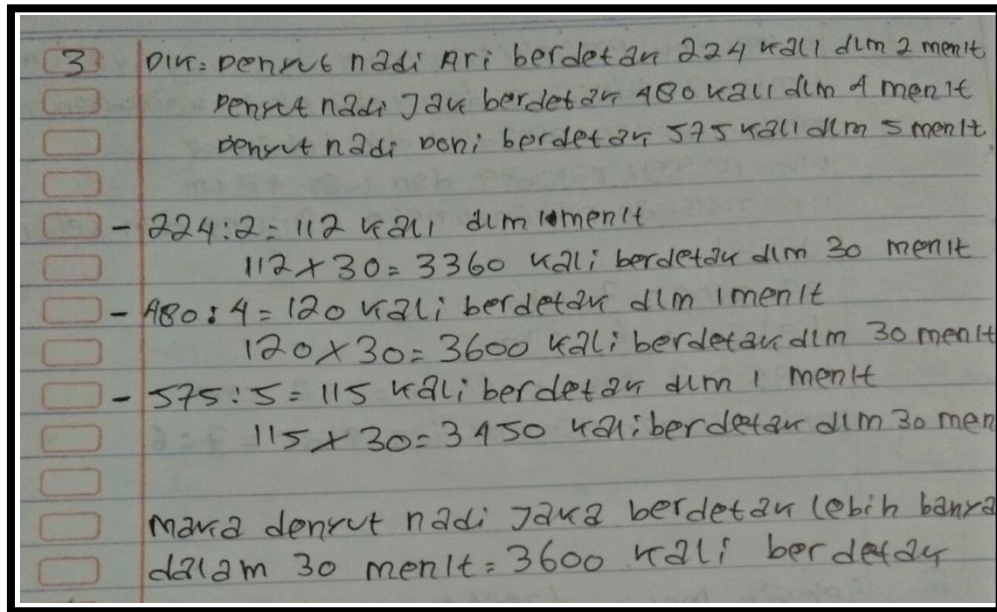 3 Dik: Denyut nadi Ari berdetak 224 kali dlm 2 menit
Denyut nadi Jak berdetak 480 kali dlm 4 menit
Denyut nadi Doni berdetak 575 kali dlm 5 menit
- 224:2= 112 kali dlm 1 menit
112 x 30= 3360 kali berdetak dlm 30 menit
- 480:4= 120 kali berdetak dlm 1 menit
120 x 30= 3600 kali berdetak dlm 30 menit
- 575:5= 115 kali berdetak dlm 1 menit
115 x 30= 3450 kali berdetak dlm 30 men
Maka denyut nadi Jaka berdetak lebih banya
dalam 30 menit= 3600 kali berdetak